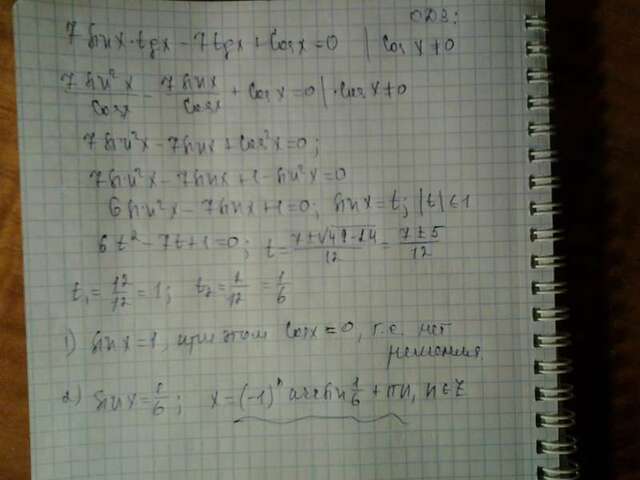 ОДЗ:
7 sin x · tg x − 7 tg x + cos x = 0 | cos x ≠ 0
7 sin² x / cos x − 7 sin x / cos x + cos x = 0 | · cos x ≠ 0
7 sin² x − 7 sin x + cos² x = 0;
7 sin² x − 7 sin x + 1 − sin² x = 0
6 sin² x − 7 sin x + 1 = 0; sin x = t; |t| ≤ 1
6t² − 7t + 1 = 0; t = (7 ± √49 − 24) / 12 = (7 ± 5) / 12
t₁ = 12/12 = 1; t₂ = 2/12 = 1/6
1) sin x = 1, при этом cos x = 0, т.е. нет
решения
2) sin x = 1/6; x = (−1)ⁿ arcsin 1/6 + πn, n ∈ Z